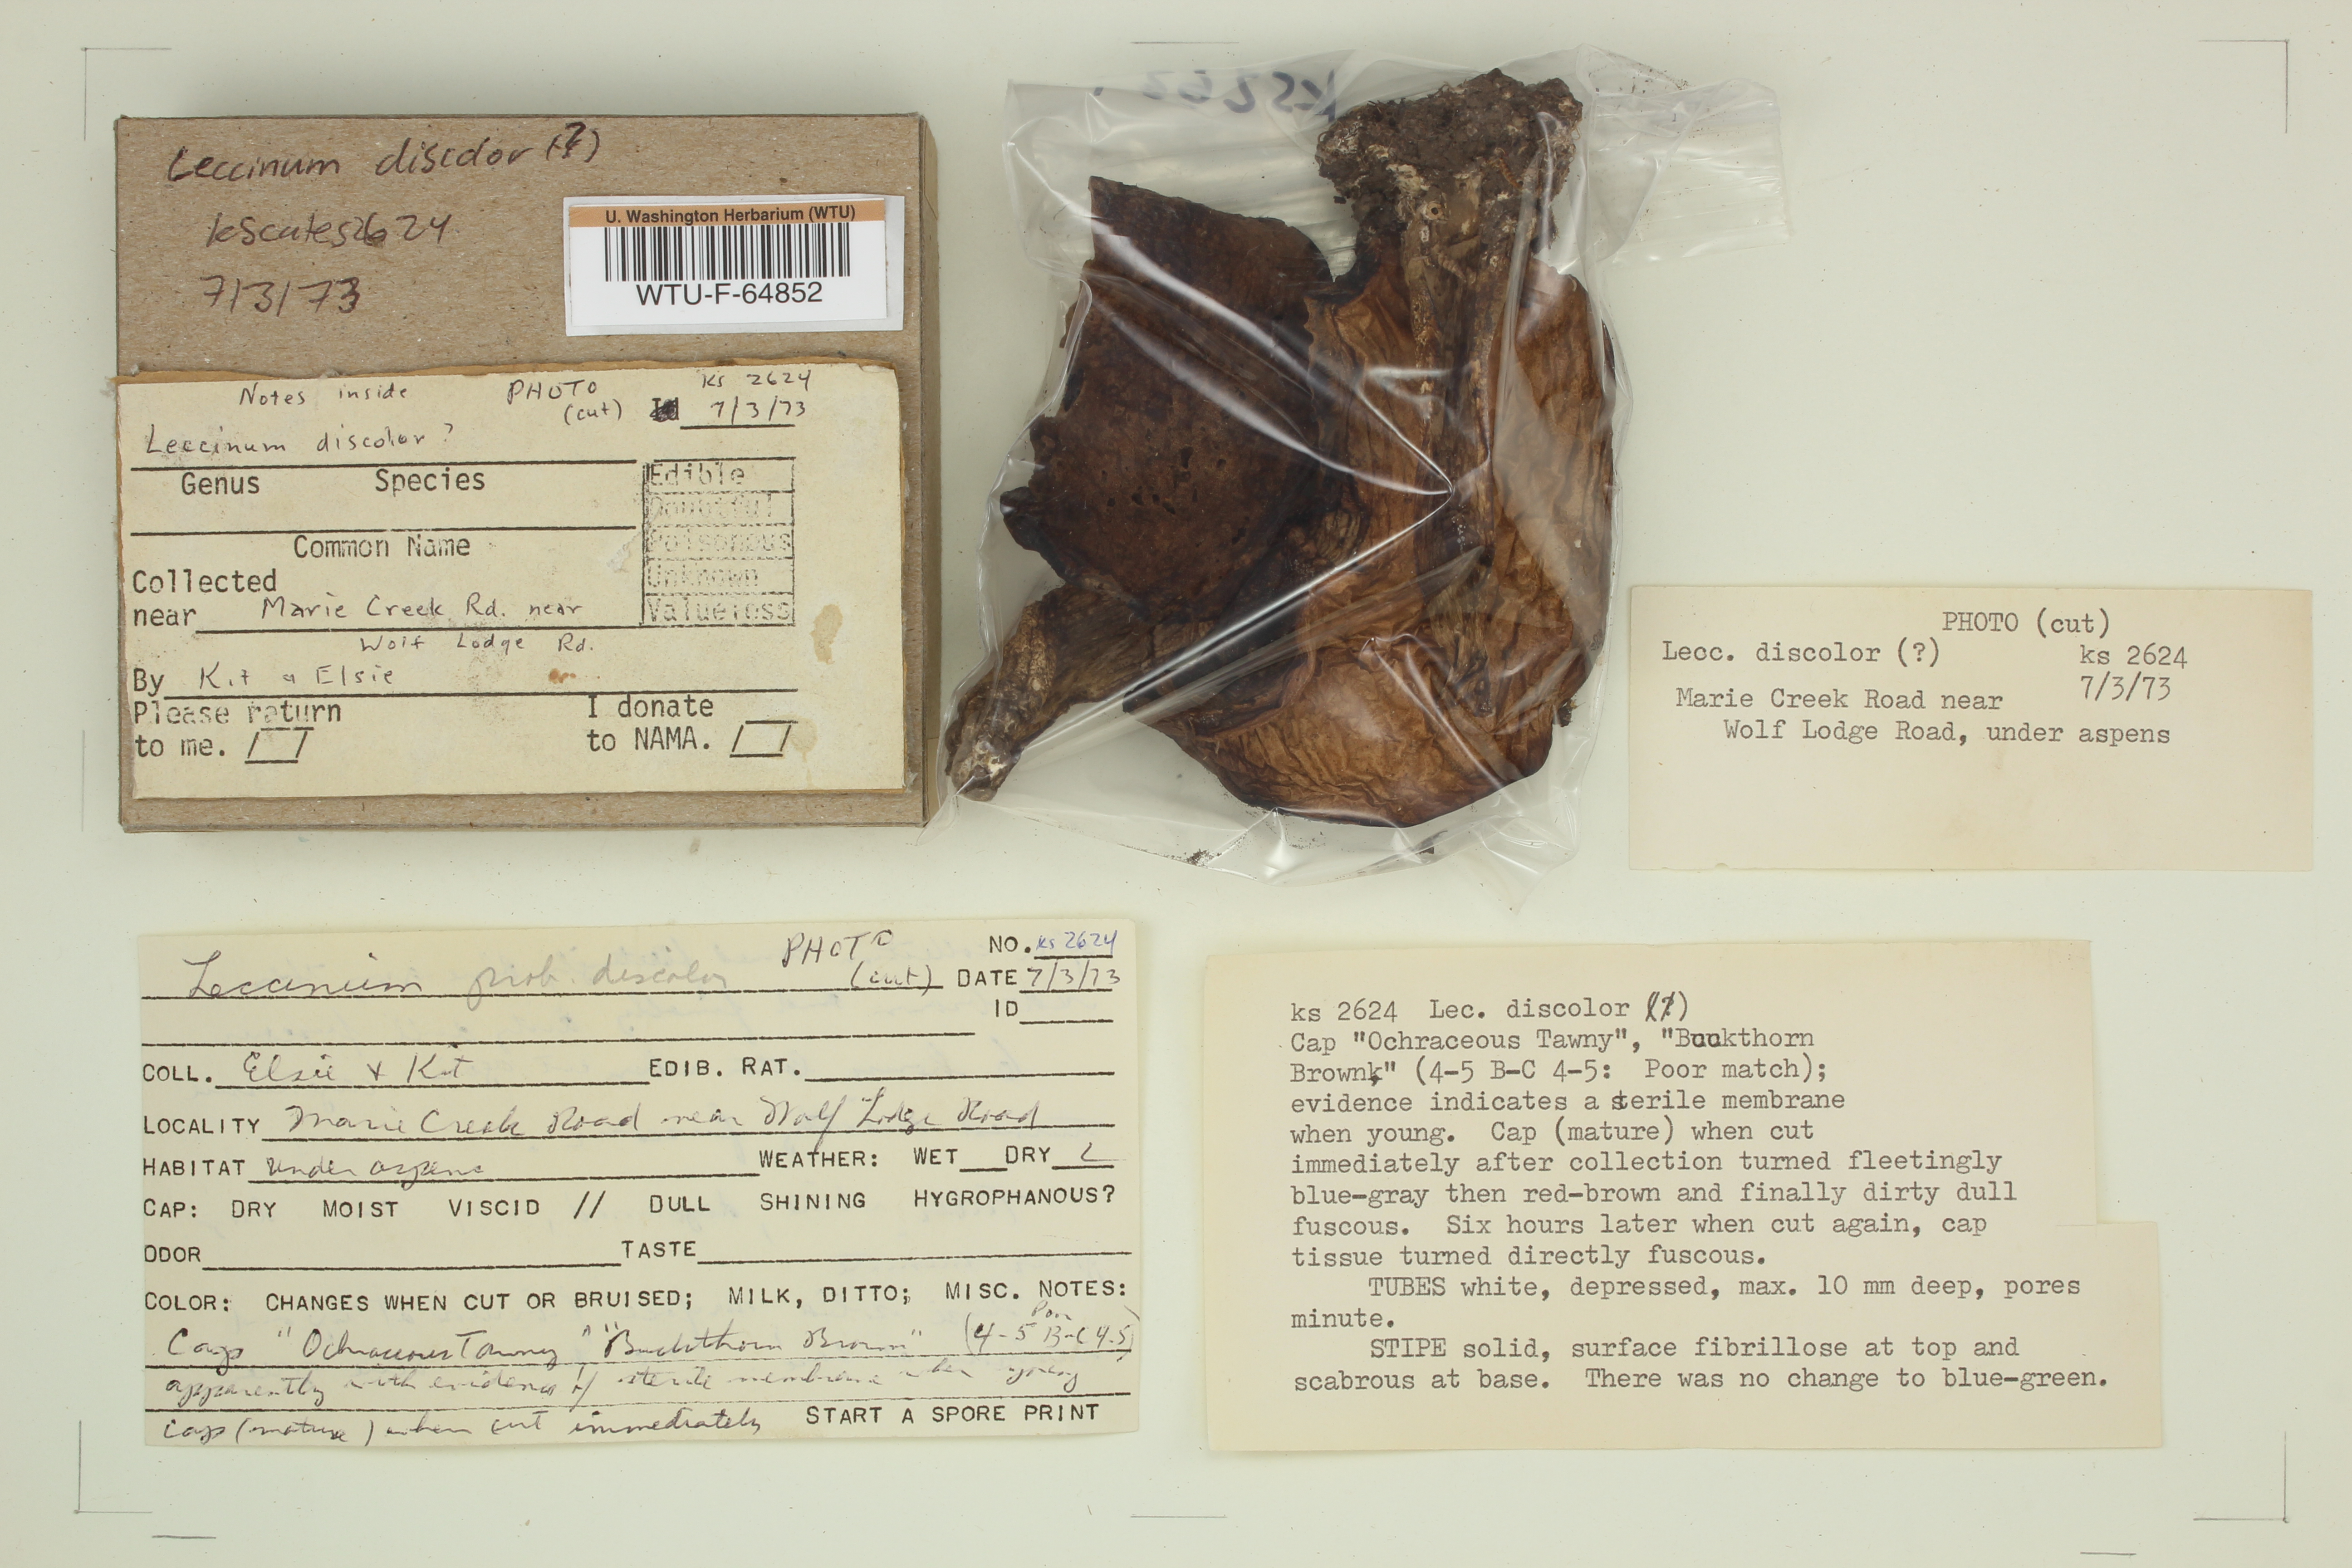 Leccinum discolor (?)
kscates2624
7/3/73
U. Washington Herbarium (WTU)
WTU-F-64852
Notes inside PHOTO ks 2624
(cut) Id 7/3/73
Leccinum discolor?
Genus Species
Common Name
Edible
Doubtful
Poisonous
Unknown
Valueless
Collected
near Marie Creek Rd. near
Wolf Lodge Rd.
By Kit & Elsie
Please return I donate
to me. to NAMA.
KS262
PHOTO (cut)
Lecc. discolor (?) ks 2624
7/3/73
Marie Creek Road near
Wolf Lodge Road, under aspens
PHOTO NO. ks 2624
Leccinum prob. discolor (cut) DATE 7/3/73
ID
COLL. Elsie & Kit EDIB. RAT.
LOCALITY Marie Creek Road near Wolf Lodge Road
HABITAT under aspens WEATHER: WET DRY
CAP: DRY MOIST VISCID // DULL SHINING HYGROPHANOUS?
ODOR TASTE
COLOR: CHANGES WHEN CUT OR BRUISED; MILK, DITTO; MISC. NOTES:
Cap "Ochraceous Tawny" "Buckthorn Brown" (4-5 B-C 4-5)
apparently with evidence of sterile membrane when young
cap (mature) when cut immediately START A SPORE PRINT
ks 2624 Lec. discolor (?)
Cap "Ochraceous Tawny", "Buckthorn
Brown" (4-5 B-C 4-5: Poor match);
evidence indicates a sterile membrane
when young. Cap (mature) when cut
immediately after collection turned fleetingly
blue-gray then red-brown and finally dirty dull
fuscous. Six hours later when cut again, cap
tissue turned directly fuscous.
TUBES white, depressed, max. 10 mm deep, pores
minute.
STIPE solid, surface fibrillose at top and
scabrous at base. There was no change to blue-green.